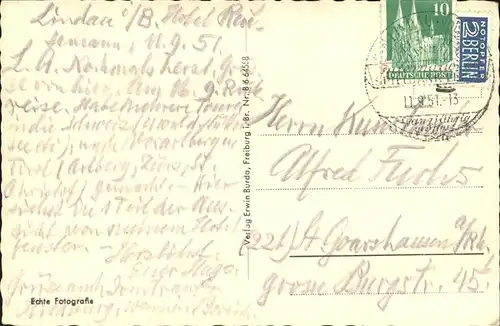 Lindau i/B. Hotel Reu-
temann, 11.9.51.
L. A. Nochmals herzl. Grüs-
se von hier. Am 16.9. Rück
reise. Habe mehrere Touren
in die Schweiz
see etc., nach Vorarlberg u.
Tirol (Arlberg, Zürs, St.
gemacht. Hier
siehst Du 1 Teil der Aus-
sicht von meinem Hotel
fenster. Herzlichst
Euer Hugo.
Grüsse auch
Echte Fotografie
Verlag Erwin Burda, Freiburg i. Br. Nr. B 6 645/8
10
DEUTSCHE POST
NOTOPFER
2 BERLIN
STEUERMARKE
11.9.51.-13
ganzjährig
geöffnet
Herrn
Alfred Fuchs
(22b) St. Goarshausen a/Rh.
grosse Burgstr. 45.